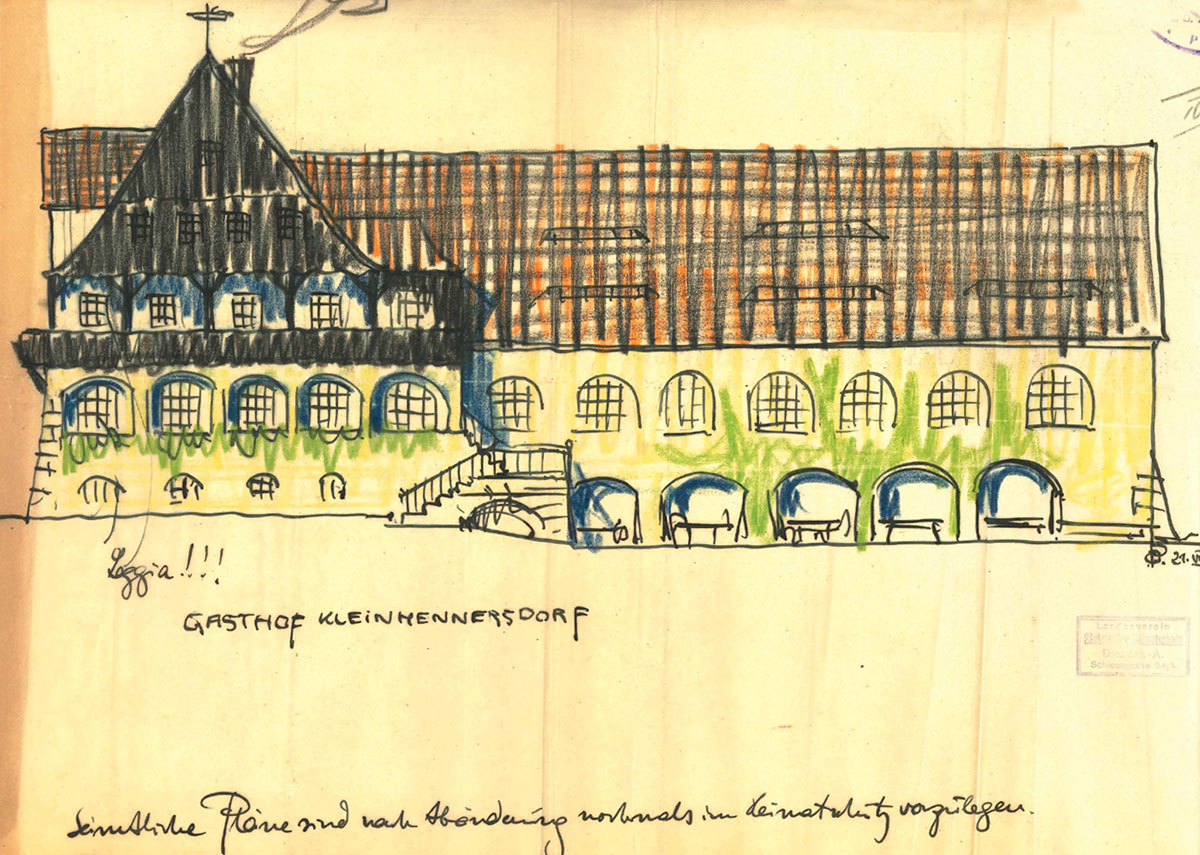 Loggia!!!
21. VII
GASTHOF KLEINHENNERSDORF
Landesverein
Dresden-A.
Schiessgasse 24, I.
Sämtliche Pläne sind nach Abänderung nochmals im Heimatschutz vorzulegen.